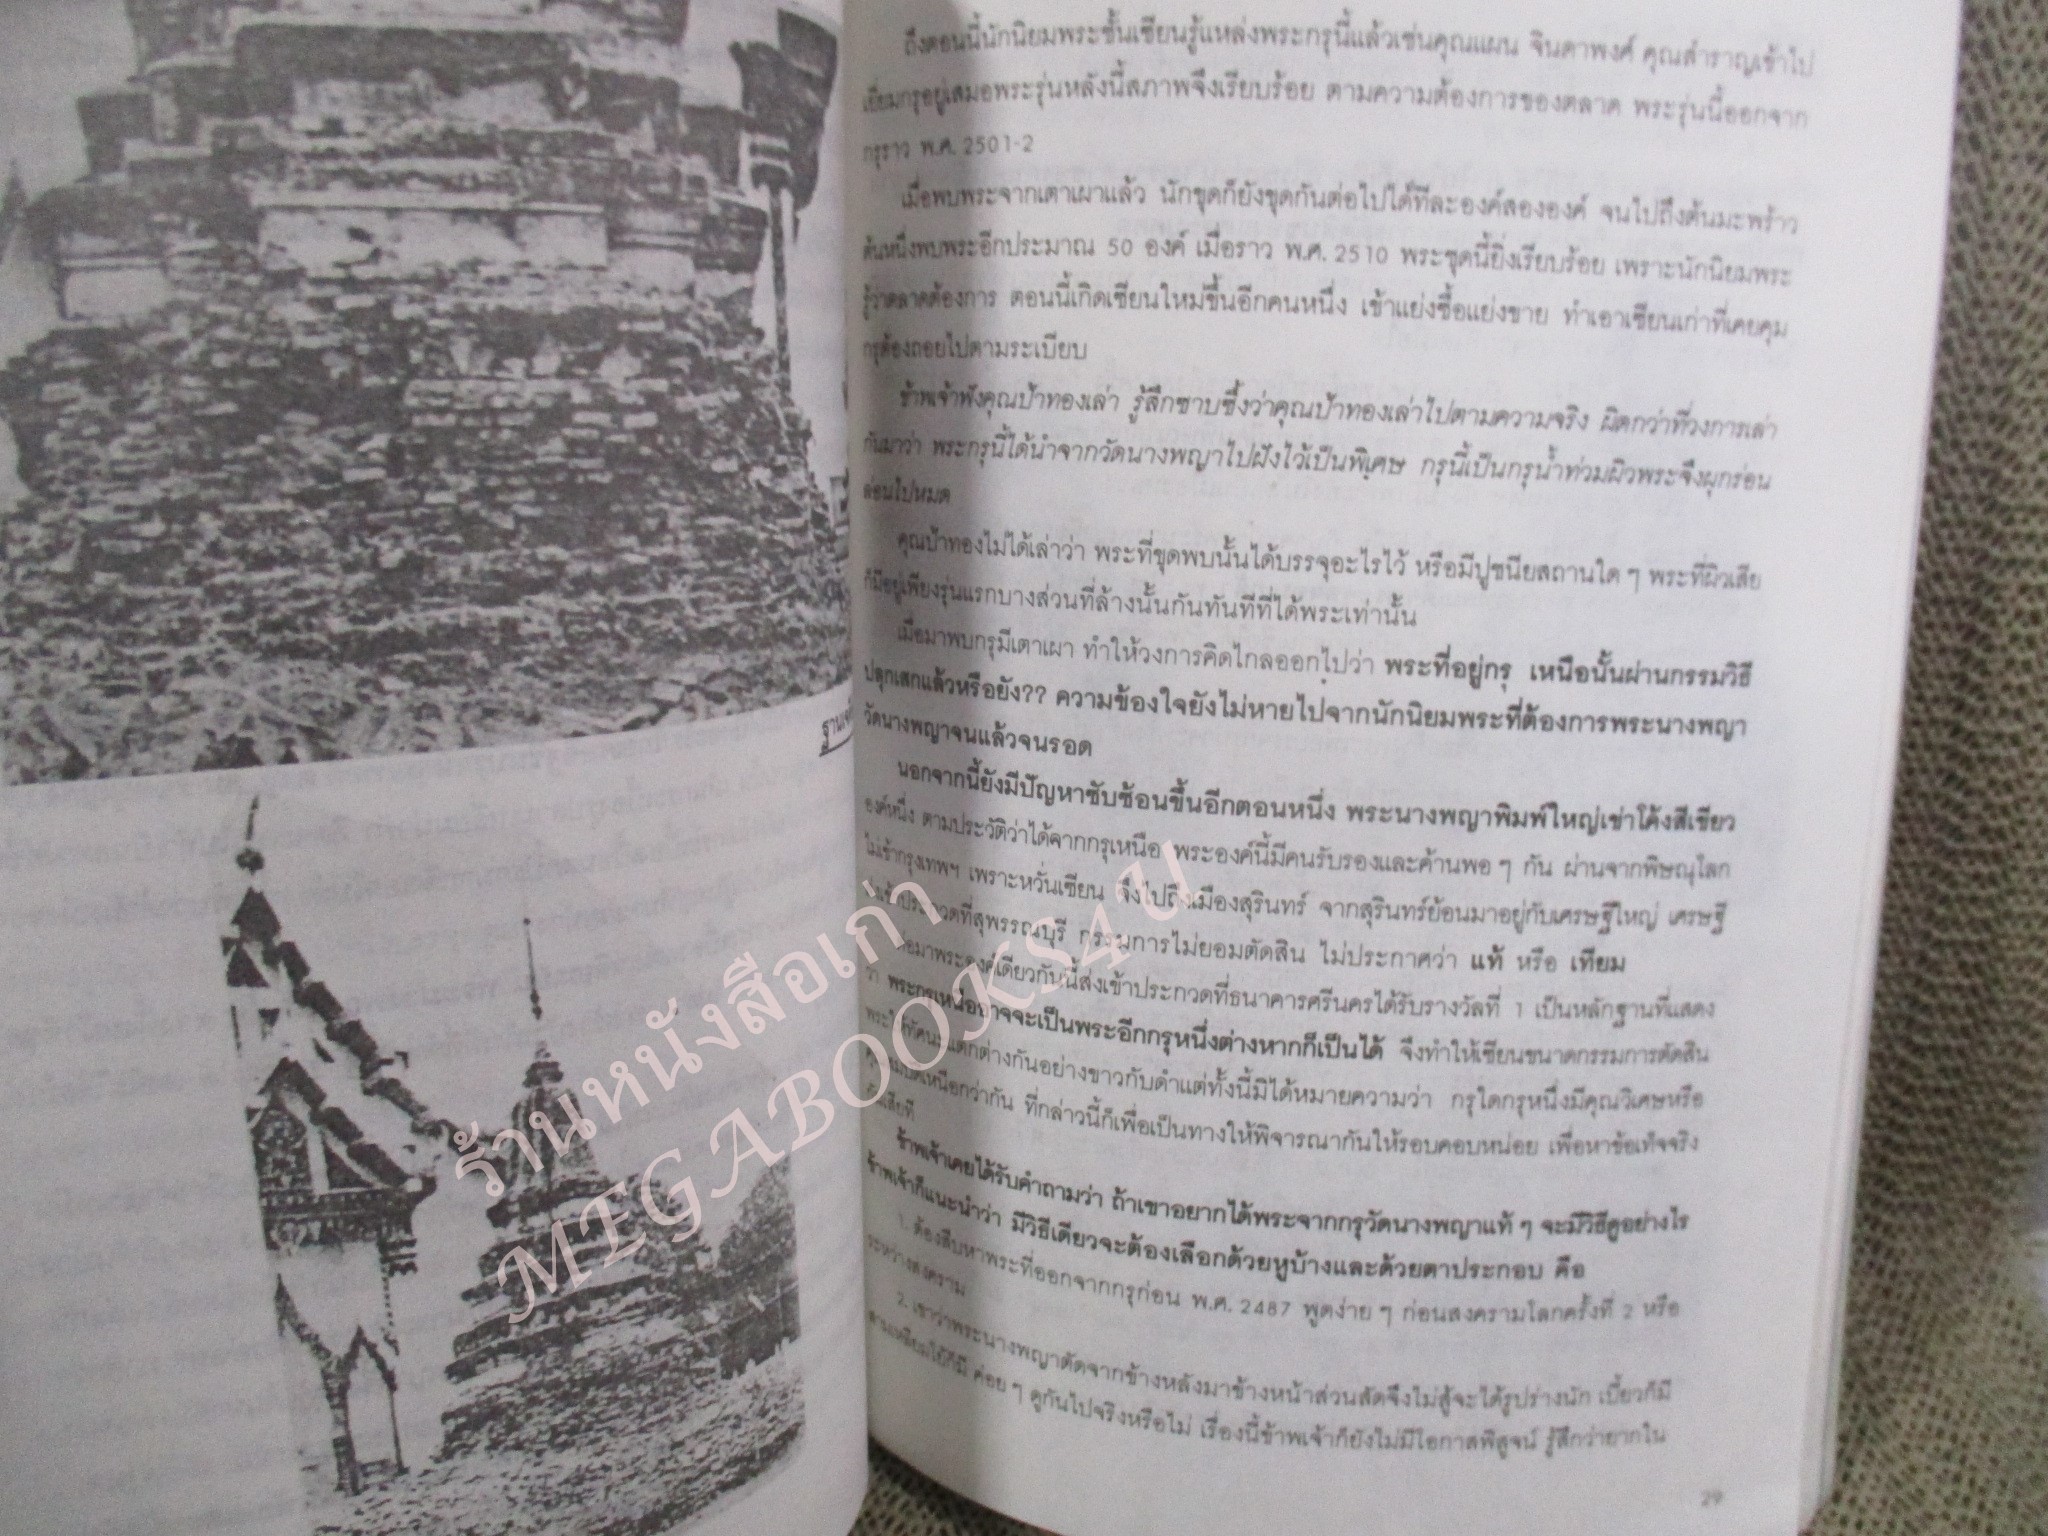 ถึงตอนนี้นักนิยมพระชั้นเซียนรู้แหล่งพระกรุนี้แล้วเช่นคุณแผน จินดาพงศ์ คุณสำราญเข้าไป
เยี่ยมกรุอยู่เสมอพระรุ่นหลังนี้สภาพจึงเรียบร้อย ตามความต้องการของตลาด พระรุ่นนี้ออกจาก
กรุราว พ.ศ. 2501-2
เมื่อพบพระจากเตาเผาแล้ว นักขุดก็ยังขุดกันต่อไปได้ทีละองค์สององค์ จนไปถึงต้นมะพร้าว
ต้นหนึ่งพบพระอีกประมาณ 50 องค์ เมื่อราว พ.ศ. 2510 พระชุดนี้ยิ่งเรียบร้อย เพราะนักนิยมพระ
รู้ว่าตลาดต้องการ ตอนนี้เกิดเซียนใหม่ขึ้นอีกคนหนึ่ง เข้าแย่งซื้อแย่งขาย ทำเอาเซียนเก่าที่เคยคุม
กรุต้องถอยไปตามระเบียบ
ข้าพเจ้าฟังคุณป้าทองเล่า รู้สึกซาบซึ้งว่าคุณป้าทองเล่าไปตามความจริง ผิดกว่าที่วงการเล่า
กันมาว่า พระกรุนี้ได้นำจากวัดนางพญาไปฝังไว้เป็นพิเศษ กรุนี้เป็นกรุน้ำท่วมผิวพระจึงผุกร่อน
ล่อนไปหมด
คุณป้าทองไม่ได้เล่าว่า พระที่ขุดพบนั้นได้บรรจุอะไรไว้ หรือมีปูชนียสถานใด ๆ พระที่ผิวเสีย
ก็มีอยู่เพียงรุ่นแรกบางส่วนที่ล้างนั้นกันทันทีที่ได้พระเท่านั้น
เมื่อมาพบกรุมีเตาเผา ทำให้วงการคิดไกลออกไปว่า พระที่อยู่กรุ เหนือนั้นผ่านกรรมวิธี
ปลุกเสกแล้วหรือยัง?? ความข้องใจยังไม่หายไปจากนักนิยมพระที่ต้องการพระนางพญา
วัดนางพญาจนแล้วจนรอด
นอกจากนี้ยังมีปัญหาซับซ้อนขึ้นอีกตอนหนึ่ง พระนางพญาพิมพ์ใหญ่เข่าโค้งสีเขียว
องค์หนึ่ง ตามประวัติว่าได้จากกรุเหนือ พระองค์นี้มีคนรับรองและค้านพอ ๆ กัน ผ่านจากพิษณุโลก
ไม่เข้ากรุงเทพฯ เพราะหวั่นเซียน จึงไปถึงเมืองสุรินทร์ จากสุรินทร์ย้อนมาอยู่กับเศรษฐีใหญ่ เศรษฐี
ส่งเข้าประกวดที่สุพรรณบุรี กรรมการไม่ยอมตัดสิน ไม่ประกาศว่า แท้ หรือ เทียม
ต่อมาพระองค์เดียวกันนี้ส่งเข้าประกวดที่ธนาคารศรีนครได้รับรางวัลที่ 1 เป็นหลักฐานที่แสดง
ว่า พระกรุเหนืออาจจะเป็นพระอีกกรุหนึ่งต่างหากก็เป็นได้ จึงทำให้เซียนขนาดกรรมการตัดสิน
พระให้ทัศนะแตกต่างกันอย่างขาวกับดำแต่ทั้งนี้มิได้หมายความว่า กรุใดกรุหนึ่งมีคุณวิเศษหรือ
เหนือกว่ากัน ที่กล่าวนี้ก็เพื่อเป็นทางให้พิจารณากันให้รอบคอบหน่อย เพื่อหาข้อเท็จจริง
กันเสียที
ข้าพเจ้าเคยได้รับคำถามว่า ถ้าเขาอยากได้พระจากกรุวัดนางพญาแท้ ๆ จะมีวิธีดูอย่างไร
ข้าพเจ้าก็แนะนำว่า มีวิธีเดียวจะต้องเลือกด้วยหูบ้างและด้วยตาประกอบ คือ
1. ต้องสืบหาพระที่ออกจากกรุก่อน พ.ศ. 2487 พูดง่าย ๆ ก่อนสงครามโลกครั้งที่ 2 หรือ
ระหว่างสงคราม
2. เขาว่าพระนางพญาตัดจากข้างหลังมาข้างหน้าส่วนสัดจึงไม่สู้จะได้รูปร่างนัก เบี้ยวก็มี
สามเหลี่ยมโย้ก็มี ค่อย ๆ ดูกันไปจริงหรือไม่ เรื่องนี้ข้าพเจ้าก็ยังไม่มีโอกาสพิสูจน์ รู้สึกว่ายากใน
29
ร้านหนังสือเก่า
MEGABOOKS4U